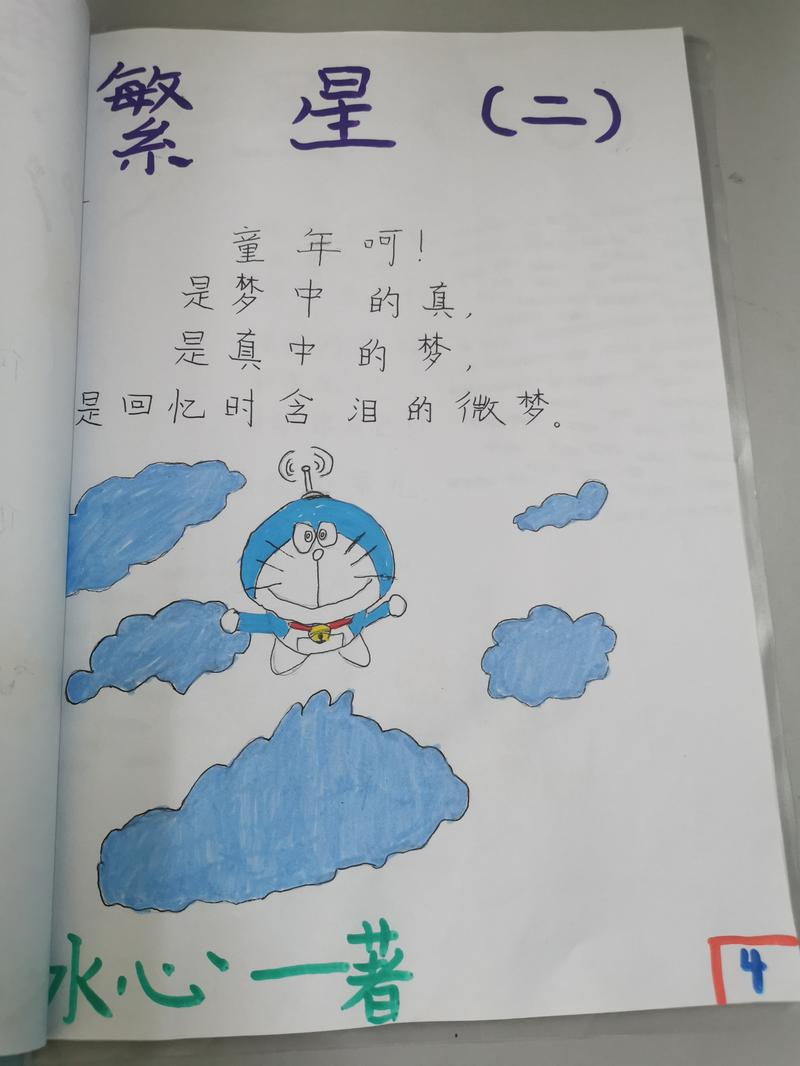 繁星（二）
童年呵！
是梦中的真，
是真中的梦，
是回忆时含泪的微梦。
冰心一著
4